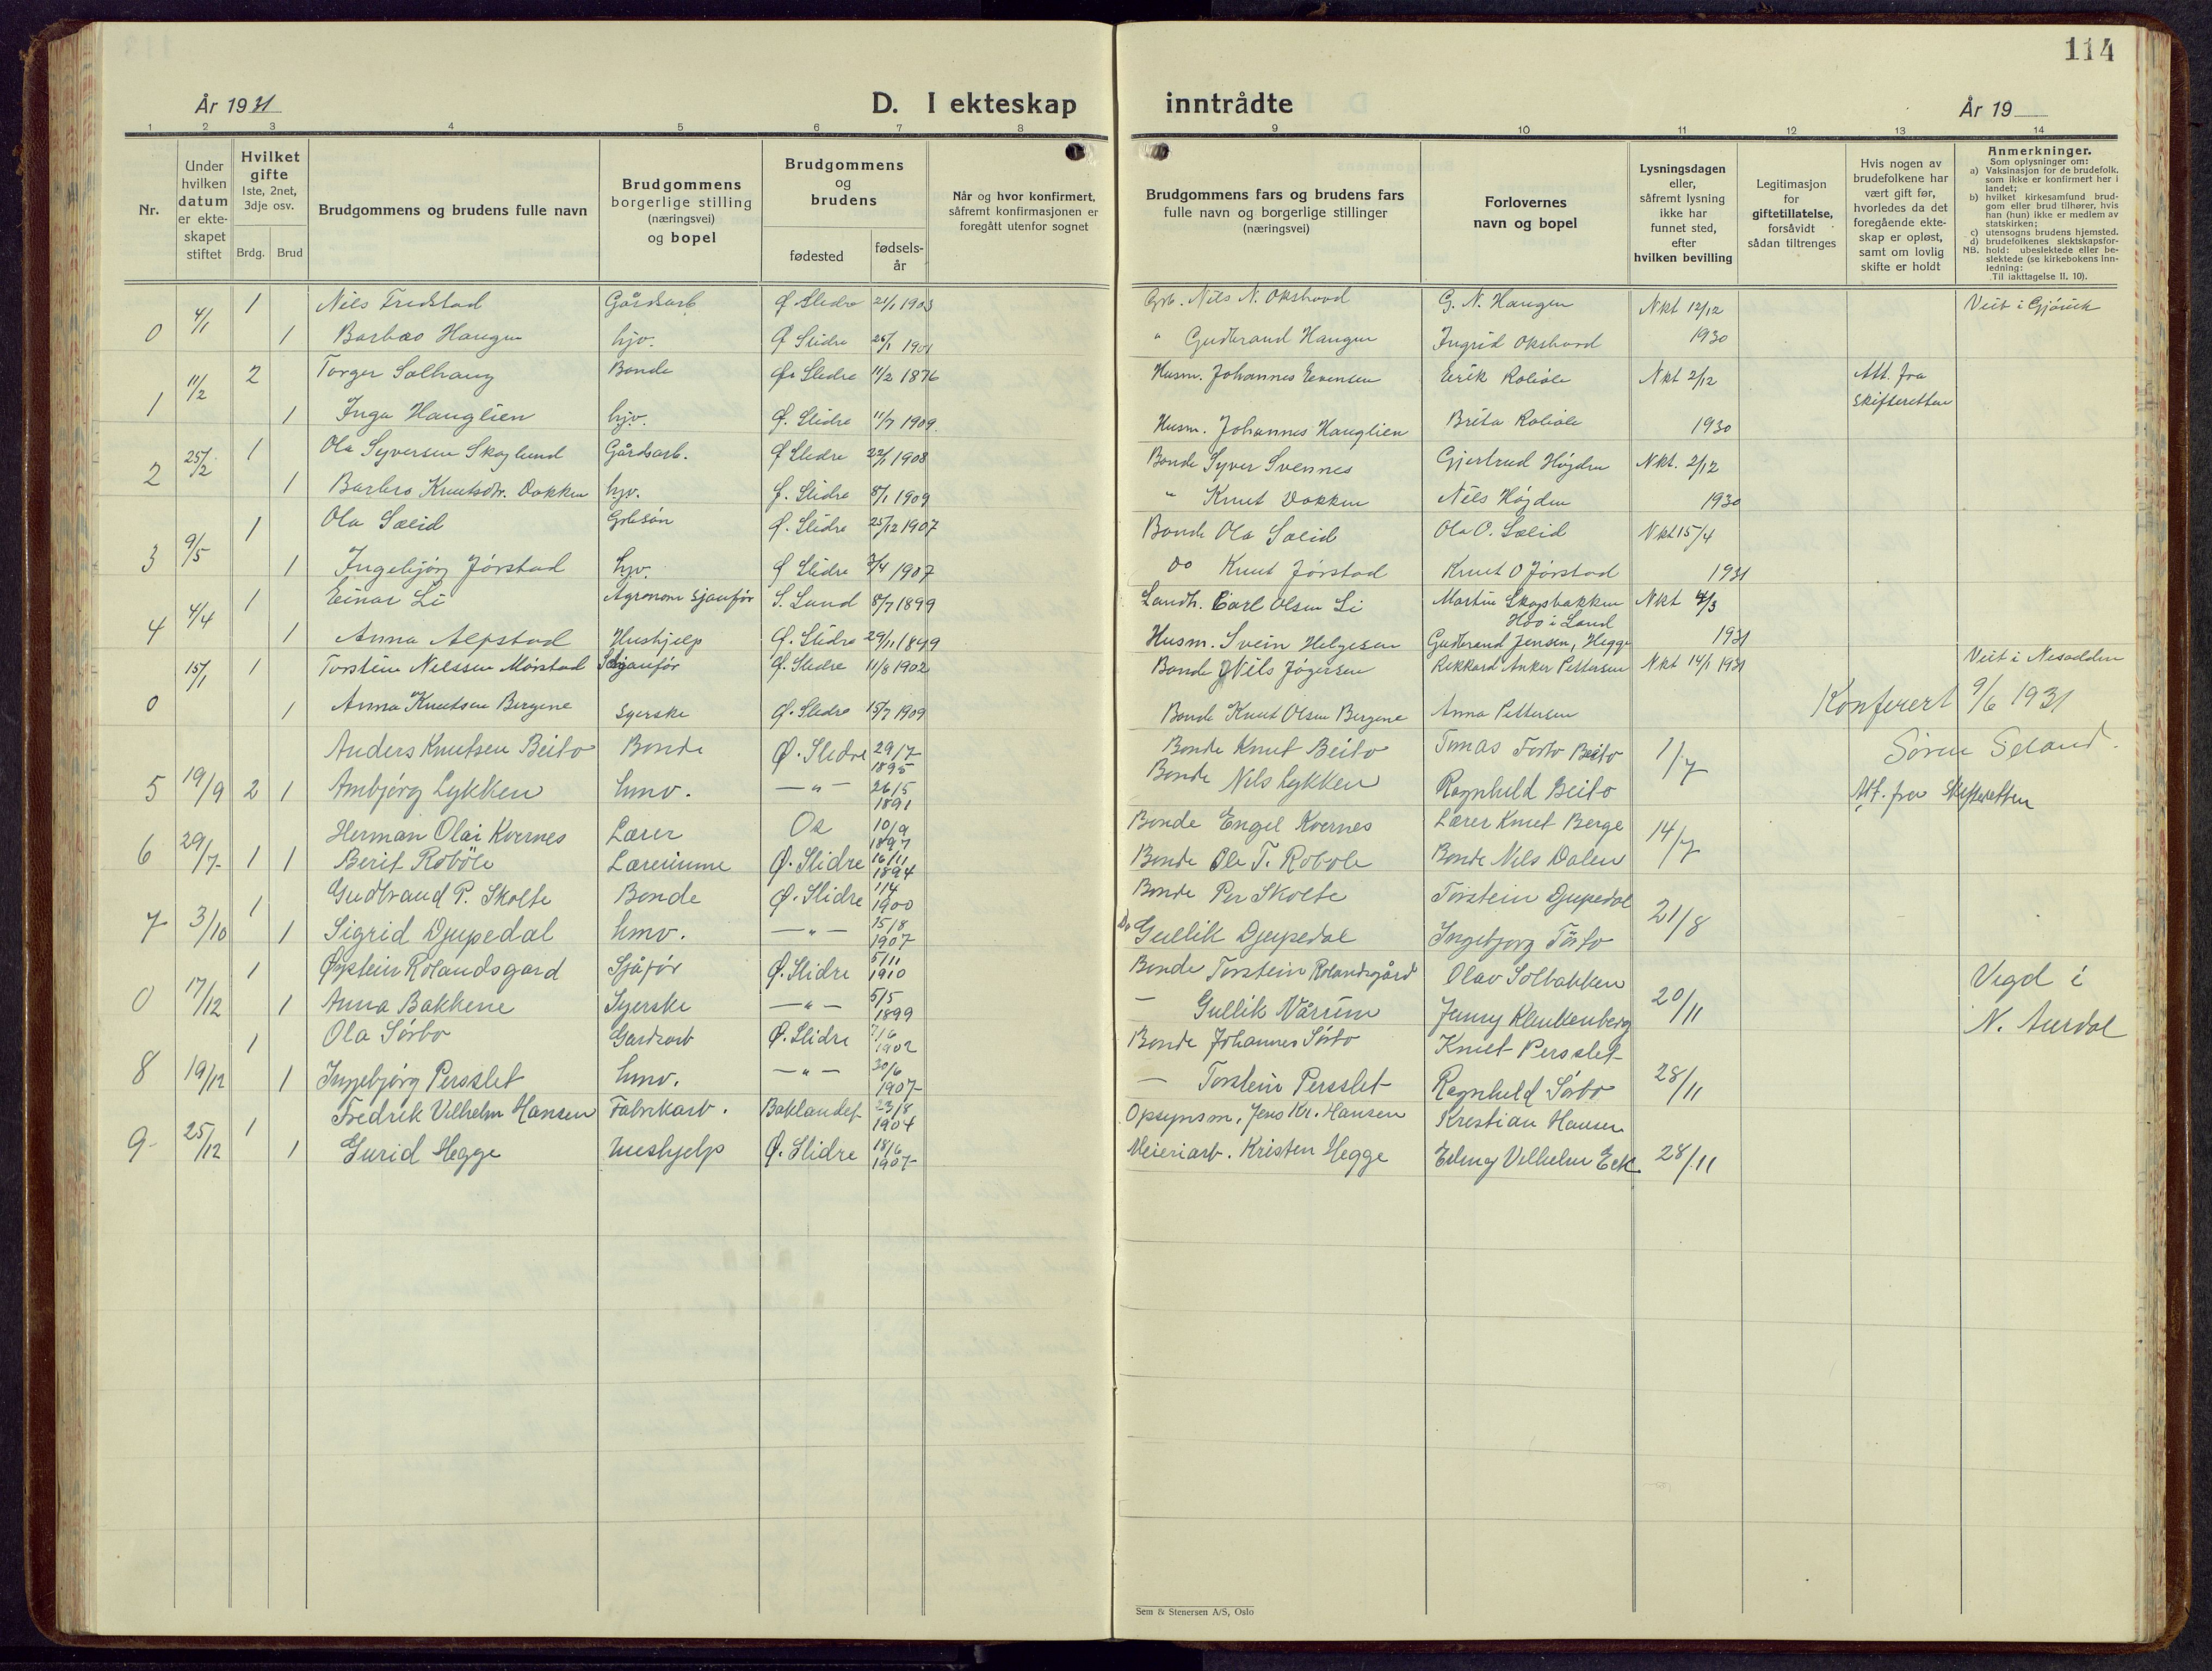 114
År 1931
D. I ekteskap
inntrådte
År 19
1 2 3 4 5 6 7 8
9 10 11 12 13 14
Nr.
Under
hvilken
datum
er ekte-
skapet
stiftet
Hvilket
gifte
1ste, 2net,
3dje osv.
Brdg. Brud
Brudgommens og brudens fulle navn
Brudgommens
borgerlige stilling
(næringsvei)
og bopel
Brudgommens
og
brudens
fødested
fødsels-
år
Når og hvor konfirmert,
såfremt konfirmasjonen er
foregått utenfor sognet
Brudgommens fars og brudens fars
fulle navn og borgerlige stillinger
(næringsvei)
Forlovernes
navn og bopel
Lysningsdagen
eller,
såfremt lysning
ikke har
funnet sted,
efter
hvilken bevilling
Legitimasjon
for
giftetillatelse,
forsåvidt
sådan tiltrenges
Hvis nogen av
brudefolkene har
vært gift før,
hvorledes da det
foregående ekte-
skap er opløst,
samt om lovlig
skifte er holdt
Anmerkninger.
Som oplysninger om:
a) Vaksinasjon for de brudefolk.
som ikke er konfirmert her i
landet;
b) hvilket kirkesamfund brud-
gom eller brud tilhører, hvis
han (hun) ikke er medlem av
statskirken;
c) utensogns brudens hjemsted.
d) brudefolkenes slektskapsfor-
NB. hold: ubeslektede eller be-
slektede (se kirkebokens inn-
ledning:
Til iakttagelse II. 10).
4/1 1 Nils Fredstad Gårdsarb. Ø Slidre 21/1 1903 Grb. Nils N. Okshovd G. N. Haugen Nkt 12/12 Viet i Gjøvik
0 1 Barbro Haugen hjv. Ø Slidre 26/1 1901 " Gudbrand Haugen Ingrid Okshovd 1930
11/2 2 Torger Solhaug Bonde Ø. Slidre 11/2 1876 Husm. Johannes Evensen Eirik Robøle Nkt 2/12 Att. fra
skifteretten
1 1 Inga Hauglien hjv. Ø. Slidre 11/7 1909. Husm. Johannes Hauglien Brita Robøle 1930
25/2 1 Ola Syversen Skoglund Gårdsarb. Ø Slidre 22/1 1908 Bonde Syver Svennes Gjertrud Høyden Nkt. 2/12
2 1 Barbro Knutsdtr. Dokken hjv. Ø. Slidre 8/1 1909 " Knut Dokken Nils Høyden 1930
9/5 1 Ola Sælid Grbsøn Ø. Slidre 25/12 1907 Bonde Ola Sælid Ola O. Sælid Nkt 15/4
3 1 Ingebjørg Jørstad hjv. Ø Slidre 1907 Do Knut Jørstad Knut O Jørstad 1931
4/4 1 Einar Li Agronom Sjauför S. Land 8/7 1899 Landh. Carl Olsen Li Martin Skogsbakken Nkt 4/3
Hov i Land
4 1 Anna Alfstad Hushjelp Ø. Slidre 29/11 1899 Husm. Svein Helgesen Gudbrand Jensen, Hegge 1931
15/1 1 Torstein Nilssen Mørstad Sjauför Ø. Slidre 11/8 1902 Bonde Nils Jøgersen Rikkard Anker Pettersen Nkt 14/1 1931 Viet i Nesodden
0 1 Anna Knutsen Bergene Syerske Ø. Slidre 15/7 1909 Bonde Knut Olsen Bergene Anna Pettersen
Konferert 9/6 1931
Søren Seland.
Anders Knutsen Beito Bonde Ø. Slidre 29/7 1895 Bonde Knut Beito Tomas Beito 1/7
5 19/9 2 1 Ambjørg Lykken hmv. — " — 26/5 1891 Bonde Nils Lykken Ragnhild Beito Att. fra Skifteretten
Herman Olai Kvernes Lærer Os 10/9 1897 Bonde Engel Kvernes Lærer Knut Berge 14/7
6 29/7 1 1 Berit Robøle Lærerinne Ø. Slidre 16/11 1894 Bonde Ole T. Robøle Bonde Nils Dalen
1 Gudbrand P. Skolte Bonde Ø. Slidre 1/4 1900 Bonde Per Skolte Torstein Djupedal 21/8
7 3/10 1 Sigrid Djupedal hmv. — " — 15/8 1907 Do Gullik Djupedal Ingebjørg
1 Øystein Rolandsgard Sjåfør Ø. Slidre 5/11 1910 Bonde Torstein Rolandsgård Olav Solbakken 20/11 Vigd i
0 17/12 1 Anna Bakkene Syerske — " — 5/5 1899 — Gullik Jenny Klinkenberg N. Aurdal
1 Ola Sørbo Gardsarb Ø. Slidre 7/6 1902 Bonde Johannes Sørbo Knut Persslet 28/11
8 19/12 1 Ingebjørg Persslet hmv. — " — 30/6 1907 — Torstein Persslet Ragnhild Sørbo
1 Fredrik Vilhelm Hansen Fabrikarb. Baklandet 23/8 1904 Opsynsm. Jens Kr. Hansen Kristian Hansen 28/11
9 25/12 1 Gurid Hegge hushjelp Ø. Slidre 18/6 1907 Meieriarb. Kristen Hegge Erling Vilhelm Eek
Sem & Stenersen A/S, Oslo